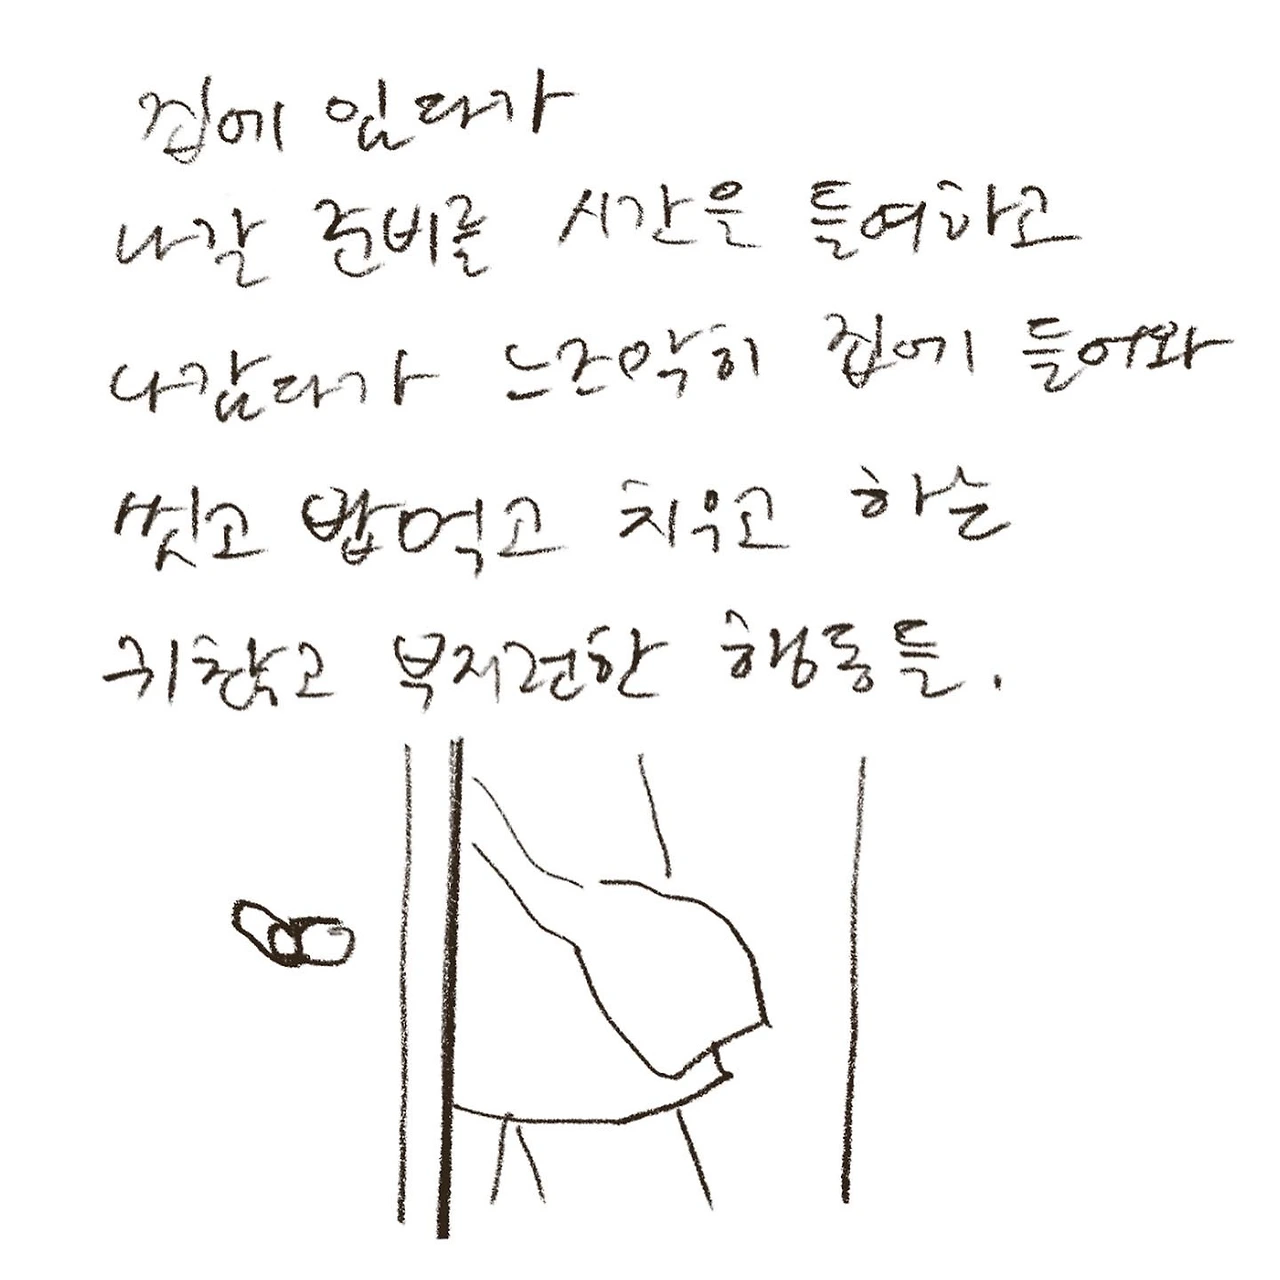 집에 있다가
나갈 준비를 시간을 들여하고
나갔다가 느즈막히 집에 들어와
씻고 밥먹고 치우고 하는
귀찮고 부지런한 행동들.